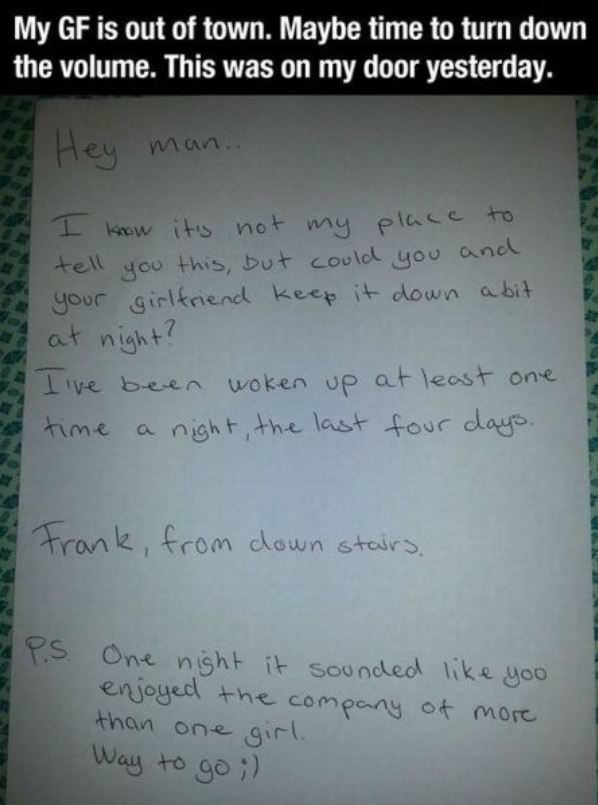 My GF is out of town. Maybe time to turn down
the volume. This was on my door yesterday.
Hey man..
I know its not my place to
tell you this, but could you and
your girlfriend keep it down a bit
at night?
I've been woken up at least one
time a night, the last four days.
Frank, from down stairs.
P.S. One night it sounded like yoo
enjoyed the company of more
than one girl.
Way to go ;)